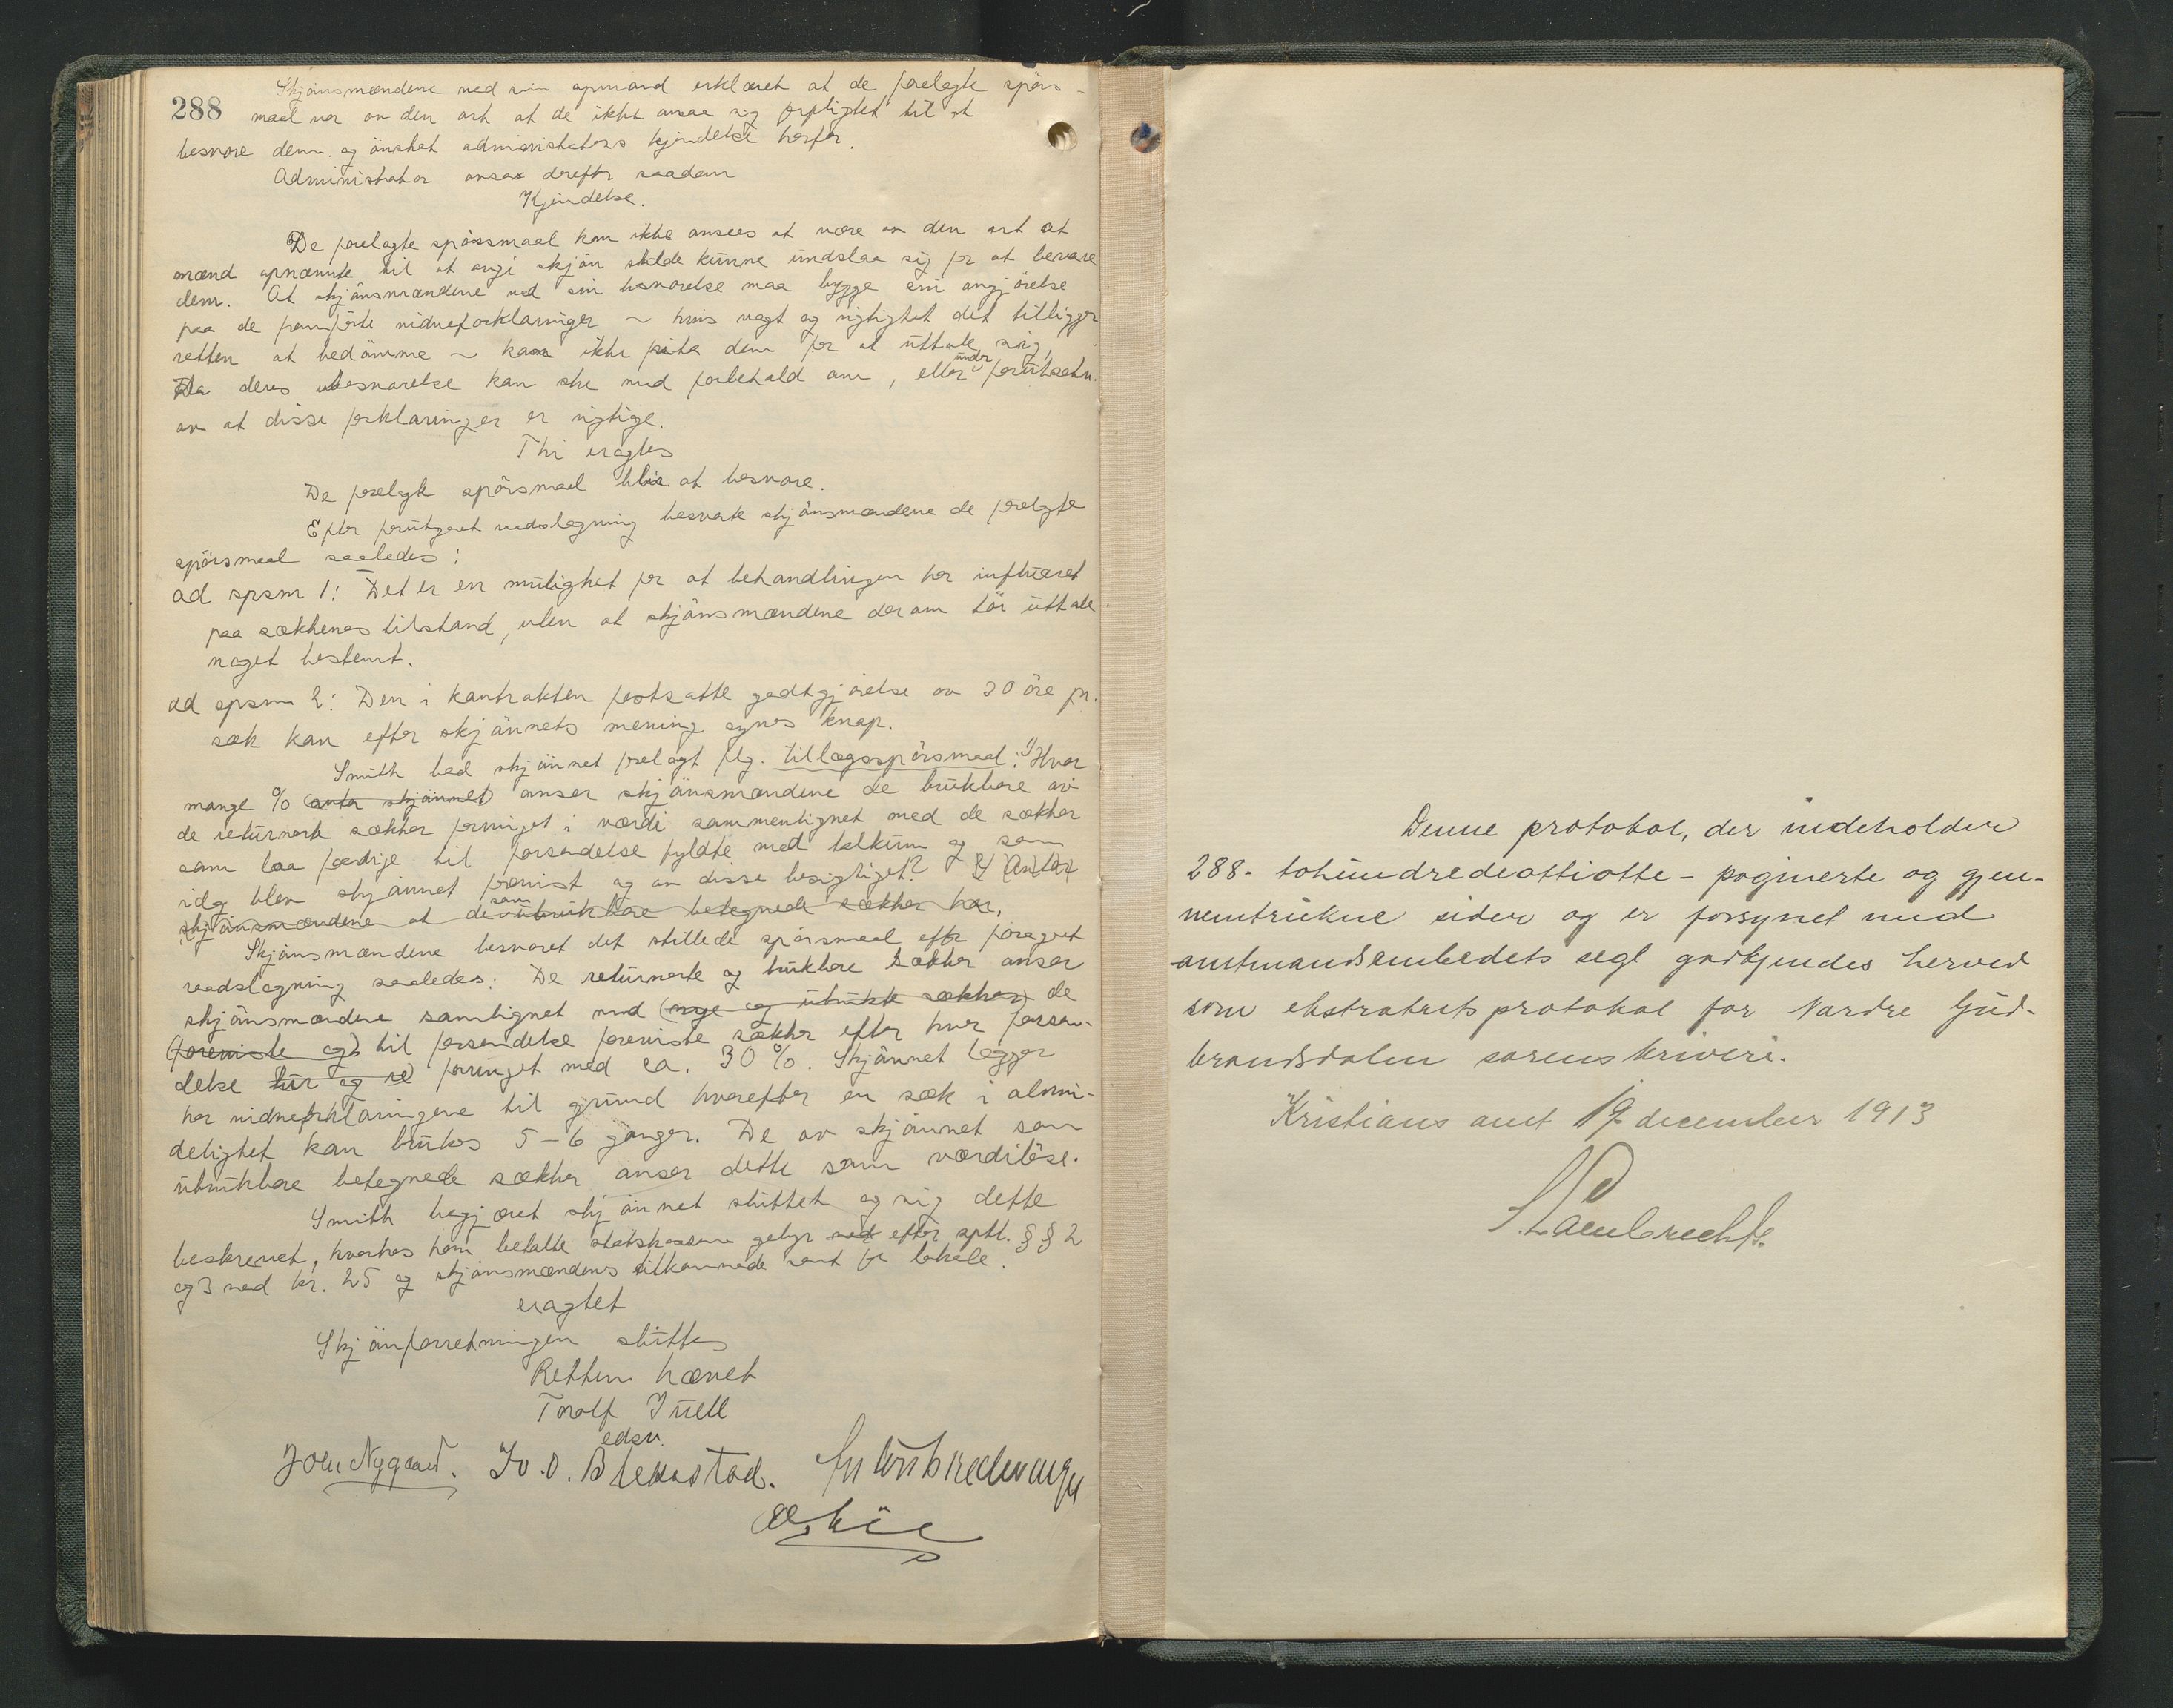 288
Skjønsmændene ved sin opmand erklæret at de forelagte spørs-
maal var av den art at de ikke ansaa sig forpligtet til at
besvare dem og ønsket administrators kjendelse herfor.
Administrator avsaa derefter saadan
Kjendelse.
De forelagte spørsmaal kan ikke ansees at være av den art at
mænd opnævnte til at avgi skjøn skulde kunne undslaa sig for at besvare
dem. At skjønsmændene ved sin besvarelse maa bygge sin avgjørelse
paa de fremførte vidneforklaringer ~ hvis vegt og rigtighet det tilligger
retten at bedømme ~ kan ikke frita dem for at uttale sig,
da deres besvarelse kan ske med forbehold om, eller under forutsetn.
av at disse forklaringer er rigtige.
Thi eragtes
De forelagte spørsmaal blir at besvare.
Efter forutgaaet raadslagning besvarte skjønsmændene de forelagte
spørsmaal saaledes:
ad spsm 1: Det er en mulighet for at behandlingen har influeret
paa sækkenes tilstand, uten at skjønsmændene derom tør uttale
noget bestemt.
ad spsm 2: Den i kontrakten fastsatte godtgjørelse av 30 øre pr.
sæk kan efter skjønnets mening synes knap.
Smith bad skjønnet forelagt flg. tillægsspørsmaal: 1) Hvor
mange % (antar skjønnet) anser skjønsmændene de brukbare av
de returnerte sækker forringet i værdi sammenlignet med de sækker
som laa færdige til forsendelse fyldte med talkum og som
idag blev skjønnet forevist og av disse besigtiget? 2) (Antar
skjønsmændene at de som ubrukbare betegnede sækker har,
Skjønsmændene besvaret det stillede spørsmaal efter foregaaet
raadslagning saaledes: De returnerte og brukbare sækker anser
skjønsmændene samlignet med (nye og ubrukte sækker) de
(foreviste og) til forsendelse foreviste sækker efter hver forsen-
delse forringet med ca. 30 %. Skjønnet lægger
her vidneforklaringene til grund hvorefter en sæk i almin-
delighet kan brukes 5-6 ganger. De av skjønnet som
ubrukbare betegnede sækker anser dette som værdiløse.
Smith begjæret skjønnet sluttet og sig dette
beskrevet, hvorhos han betalte statskassens gebyr efter sptl. §§ 2
og 3 med kr. 25 og skjønsmændenes tilkommende samt for lokale.
eragtet
Skjønforretningen sluttes
Retten hævet
Torolf Juell
edsv.
John Nygaard. Iv. O. Blekastad.
Denne protokol, der indeholder
288 - tohundredeottiotte - paginerte og gjen-
nemtrukne sider og er forsynet med
amtmandsembedets segl godkjendes herved
som ekstraretsprotokol for Nordre Gud-
brandsdalen sorenskriveri.
Kristians amt 19 december 1913
Lambrechts.